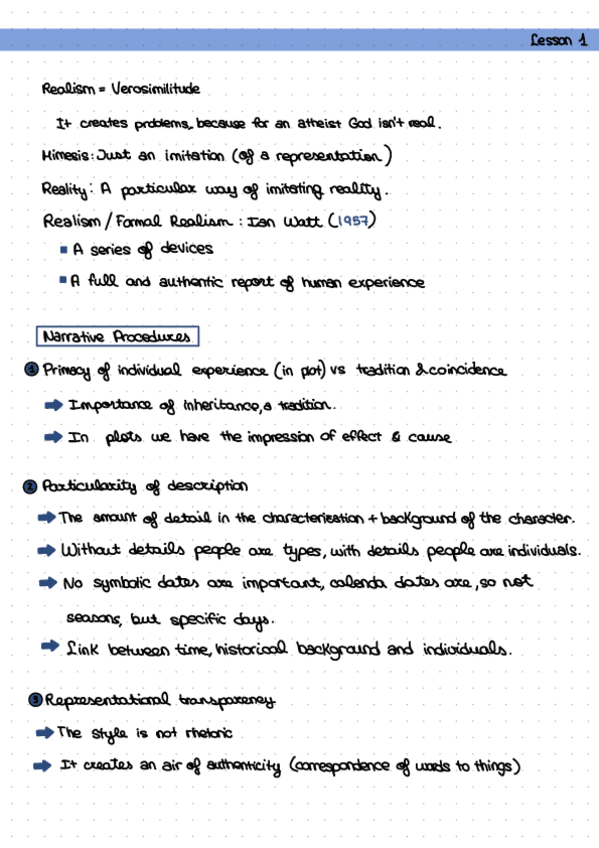 Lesson 1
Realism = Verosimilitude
It creates problems, because for an atheist God isn't real.
Mimesis: Just an imitation (of a representation)
Reality: A particular way of imitating reality.
Realism / Formal Realism : Ian Watt (1957)
▪ A series of devices
▪ A full and authentic report of human experience
Narrative Procedures
1 Primacy of individual experience (in plot) vs tradition & coincidence
➡ Importance of inheritance, a tradition.
➡ In plots we have the impression of effect & cause
2 Particularity of description
➡ The amount of detail in the characterisation + background of the character.
➡ Without details people are types, with details people are individuals.
➡ No symbolic dates are important, calenda dates are, so not
seasons, but specific days.
➡ Link between time, historical background and individuals.
3 Representational transparency
➡ The style is not rhetoric
➡ It creates an air of authenticity (correspondence of words to things)